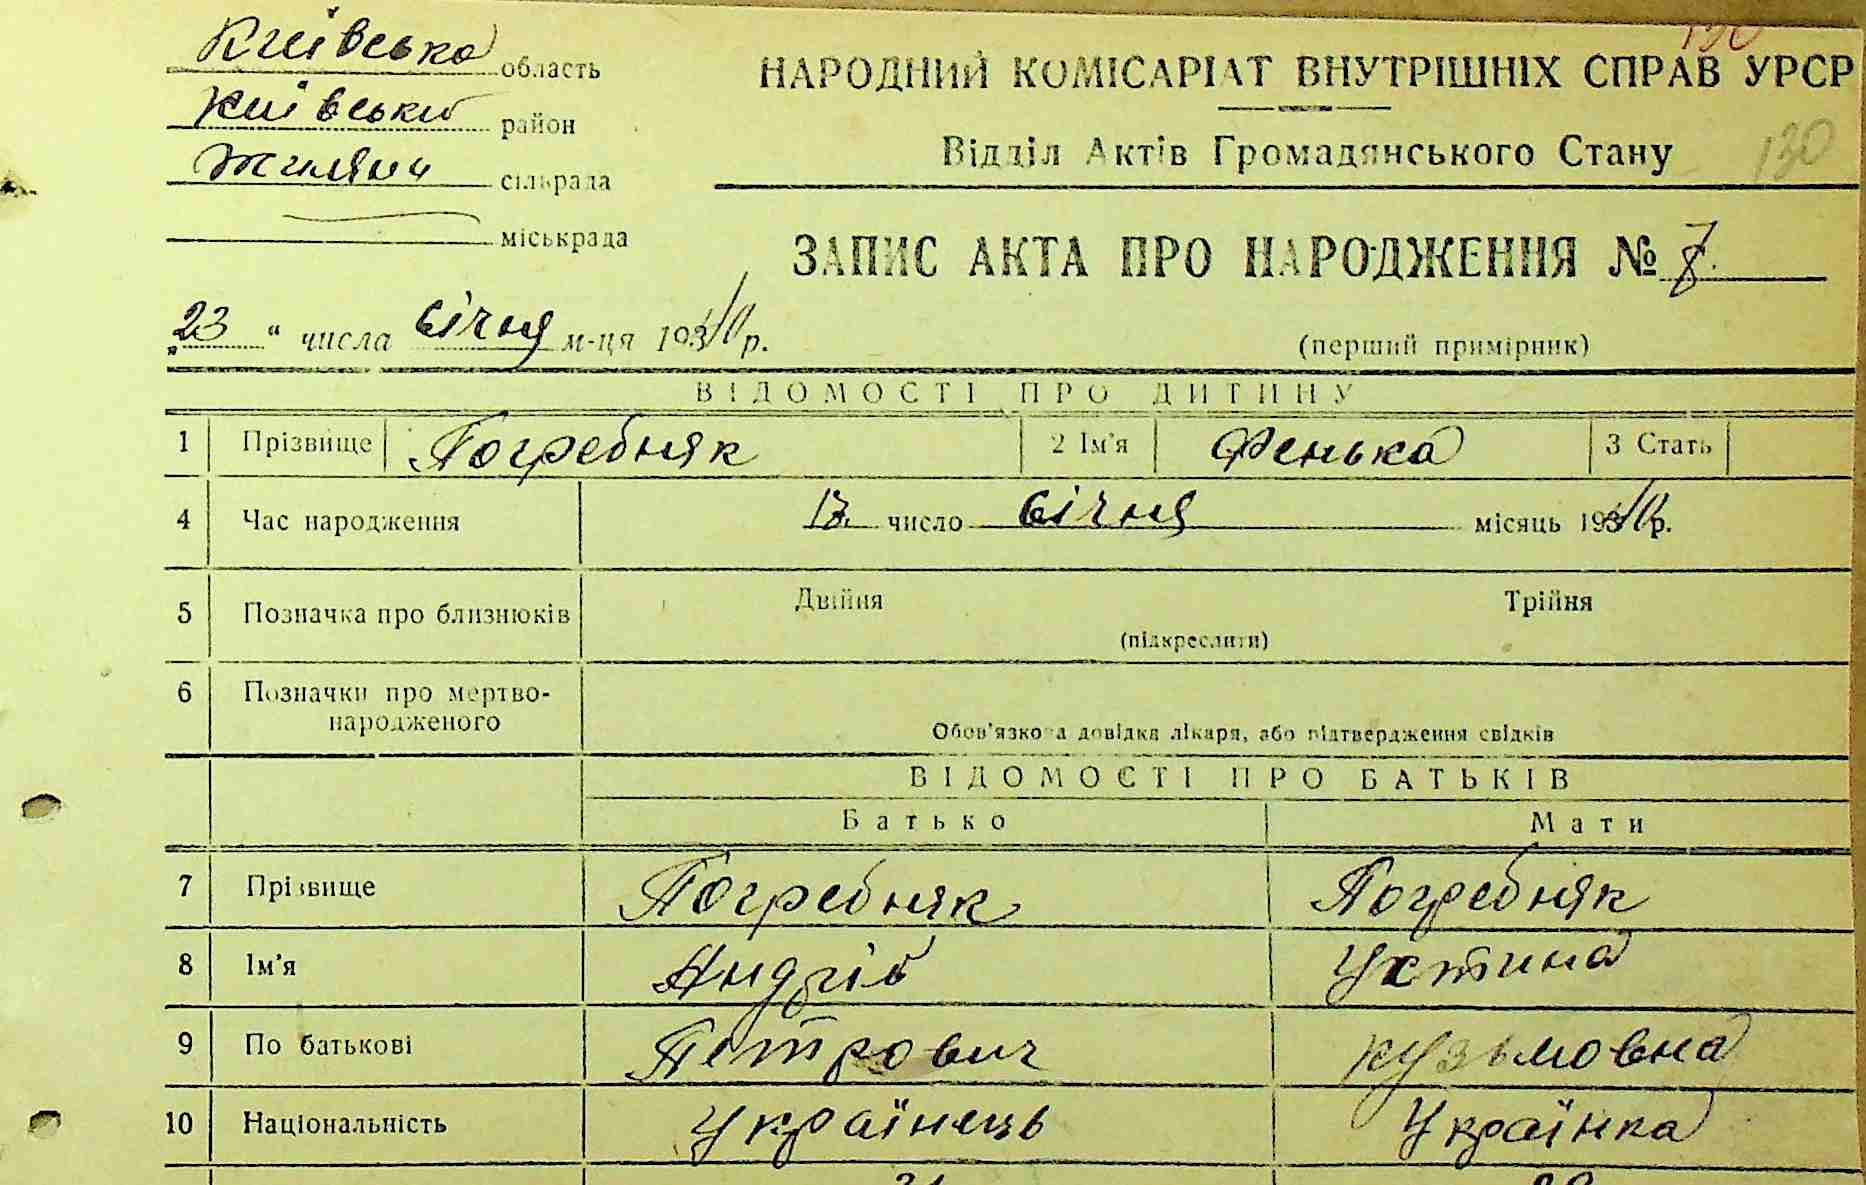 Київська область
Київський район
Жиляни сільрада
міськрада
130
НАРОДНИЙ КОМІСАРІАТ ВНУТРІШНІХ СПРАВ УРСР
Відділ Актів Громадянського Стану 130
ЗАПИС АКТА ПРО НАРОДЖЕННЯ № 7
„23“ числа січня м-ця 1940 р.
(перший примірник)
ВІДОМОСТІ ПРО ДИТИНУ
1 Прізвище Погребняк 2 Ім'я Фенька 3 Стать
4 Час народження 17 число січня місяць 1940 р.
5 Позначка про близнюків Двійня Трійня
(підкреслити)
6 Позначки про мертво-
народженого
Обов'язкова довідка лікаря, або підтвердження свідків
ВІДОМОСТІ ПРО БАТЬКІВ
Батько Мати
7 Прізвище Погребняк Погребняк
8 Ім'я Андрій Устина
9 По батькові Петрович Кузьмовна
10 Національність Українець Українка